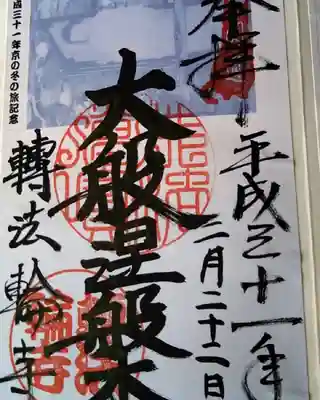 奉拝
平成三十一年
二月二十二日
大般涅槃
轉法輪寺
成三十一年京の冬の旅記念